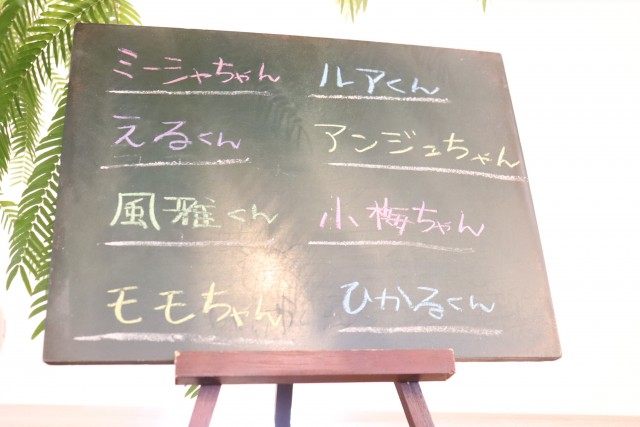 ミーシャちゃん
ルアくん
えるくん
アンジュちゃん
風雅くん
小梅ちゃん
モモちゃん
ひかるくん